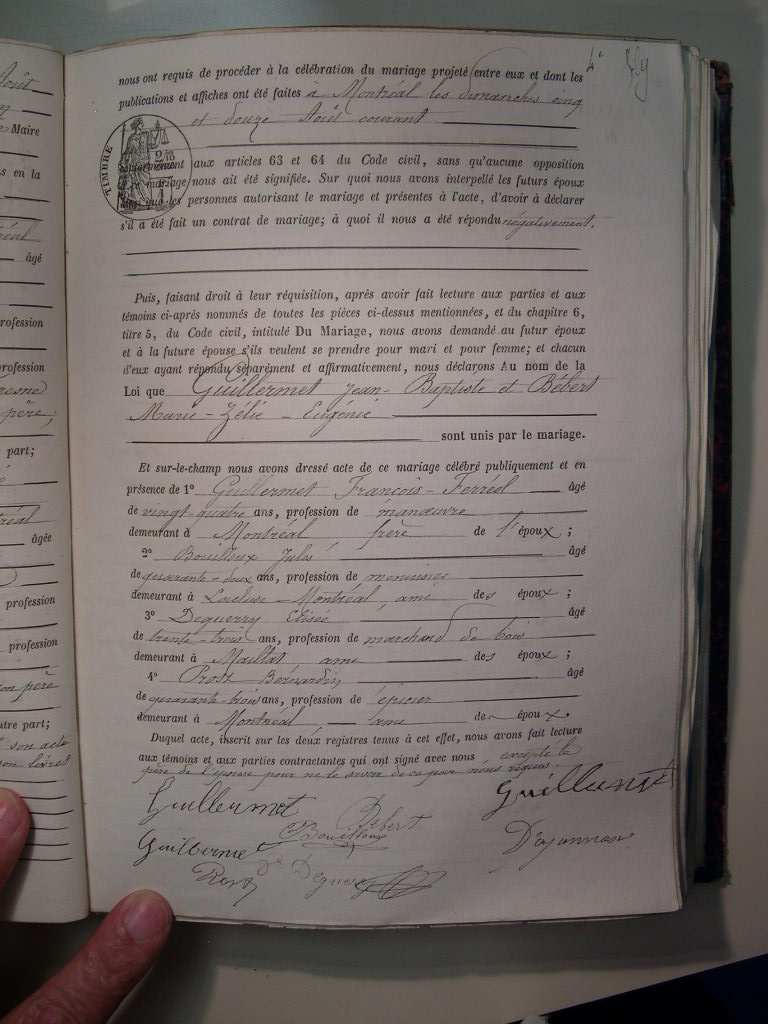 Août
Maire
s en la
réal
âgé
rofession
profession
resne
père;
part;
réal
âgée
profession
profession
son père
utre part;
son acte
son livret
4e
nous ont requis de procéder à la célébration du mariage projeté entre eux et dont les
publications et affiches ont été faites à Montréal les dimanches cinq
et douze Août courant
TIMBRE
conformément aux articles 63 et 64 du Code civil, sans qu'aucune opposition
mariage nous ait été signifiée. Sur quoi nous avons interpellé les futurs époux
que les personnes autorisant le mariage et présentes à l'acte, d'avoir à déclarer
s'il a été fait un contrat de mariage; à quoi il nous a été répondu négativement.
Puis, faisant droit à leur réquisition, après avoir fait lecture aux parties et aux
témoins ci-après nommés de toutes les pièces ci-dessus mentionnées, et du chapitre 6,
titre 5, du Code civil, intitulé Du Mariage, nous avons demandé au futur époux
et à la future épouse s'ils veulent se prendre pour mari et pour femme; et chacun
d'eux ayant répondu séparément et affirmativement, nous déclarons Au nom de la
Loi que Guillermet Jean-Baptiste et Bébert
Marie-Zélie-Eugénie
sont unis par le mariage.
Et sur-le-champ nous avons dressé acte de ce mariage célébré publiquement et en
présence de 1° Guillermet François-Ferréol âgé
de vingt-quatre ans, profession de manœuvre
demeurant à Montréal frère de l'époux;
2° Bouilloux Jules âgé
de quarante-deux ans, profession de menuisier
demeurant à Montréal, ami des époux;
3° Deguerry Elisée âgé
de trente-trois ans, profession de marchand de bois
demeurant à Maillat ami des époux;
4° Prost Bernardin âgé
de quarante-trois ans, profession de épicier
demeurant à Montréal ami de époux.
Duquel acte, inscrit sur les deux registres tenus à cet effet, nous avons fait lecture
aux témoins et aux parties contractantes qui ont signé avec nous excepté le
père de l'épouse pour ne le savoir de ce par nous requis.
Guillermet Bébert Guillermet
Bouilloux
Guillermet